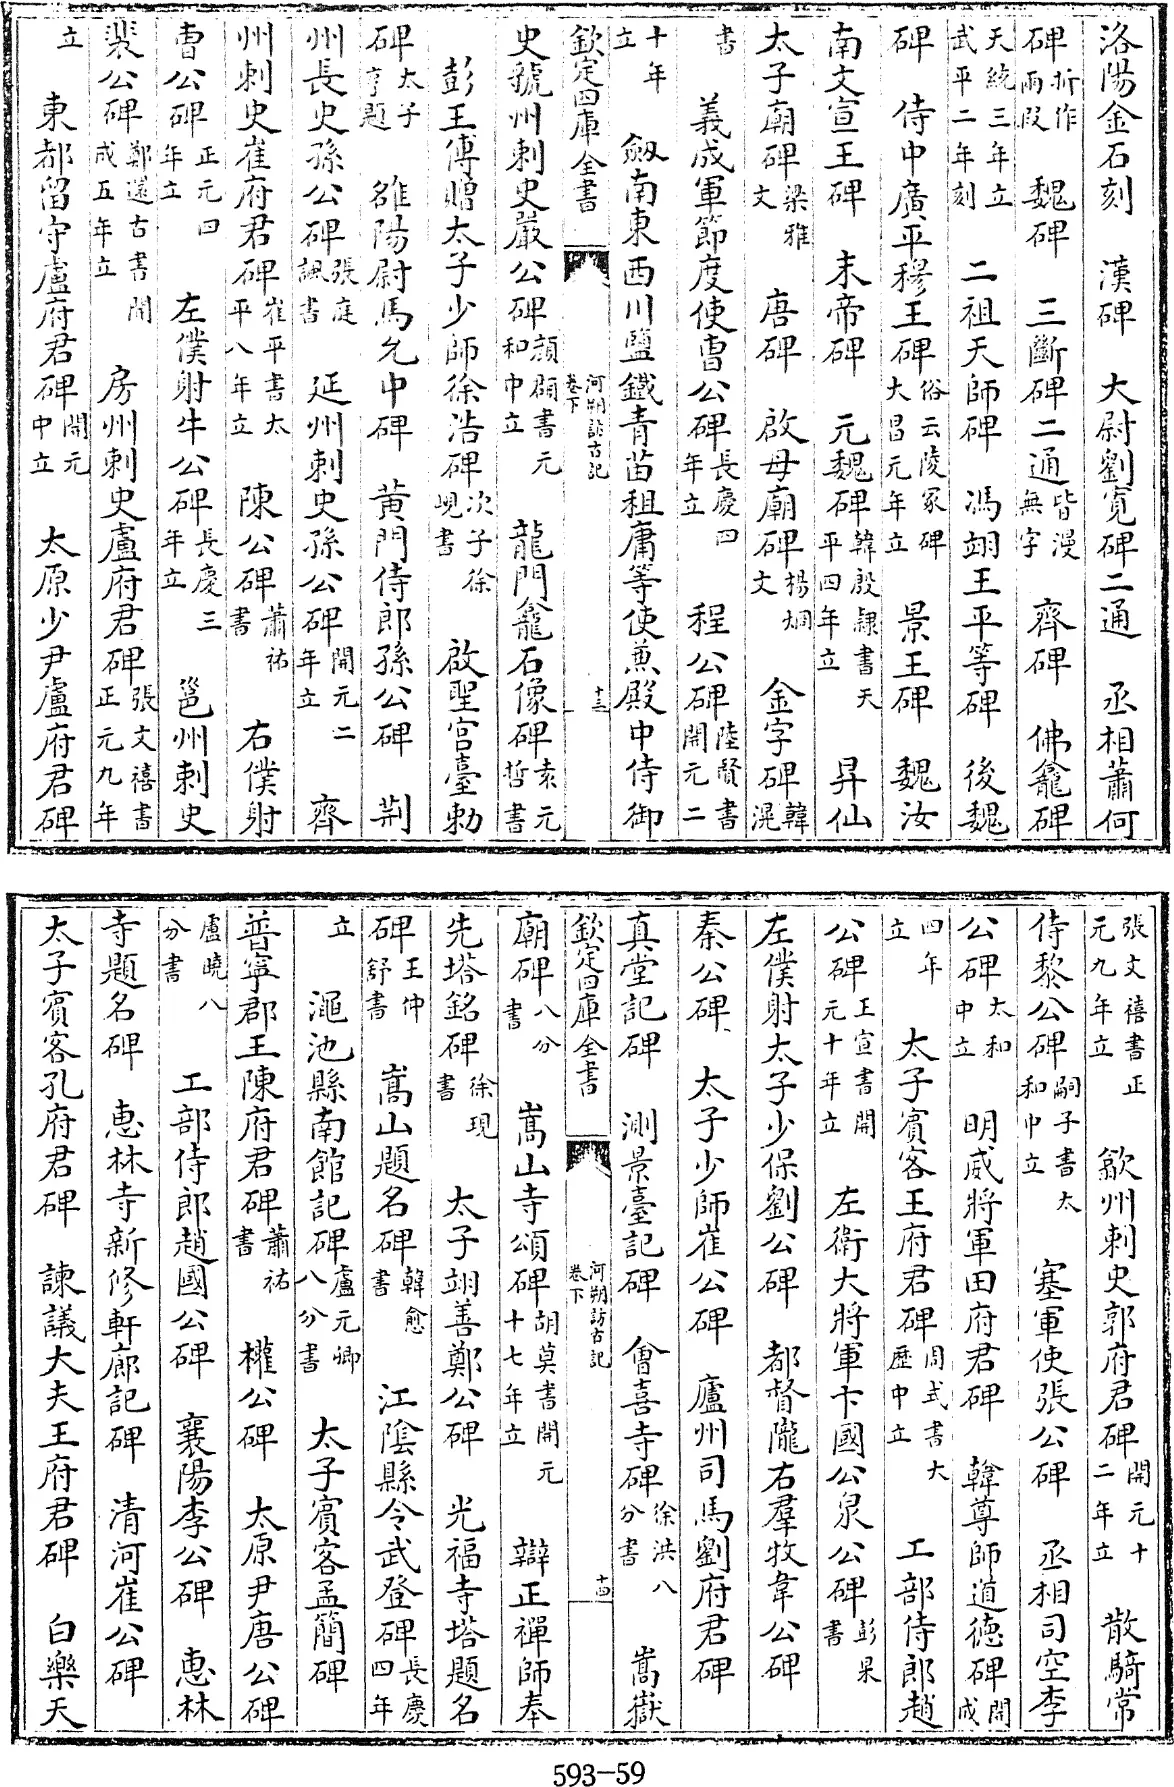 洛陽金石刻　漢碑　大尉劉寛碑二通　丞相蕭何
碑折作兩段　魏碑　三斷碑二通皆漫無字　齊碑　佛龕碑
天統三年立武平二年刻　二祖天師碑　馮翊王平等碑　後魏
碑　侍中廣平穆王碑俗云陵冢碑大昌元年立　景王碑　魏汝
南文宣王碑　末帝碑　元魏碑韓殷隷書天平四年立　昇仙
太子廟碑梁雅文　唐碑　啟母廟碑楊烱文　金字碑韓滉
書　義成軍節度使曹公碑長慶四年立　程公碑陸賢書開元二
十年立　劔南東西川鹽鐵青苗租庸等使兼殿中侍御
欽定四庫全書　河朔訪古記卷下　十三
史虢州刺史嚴公碑顔顒書元和中立　龍門龕石像碑袁元哲書
彭王傅贈太子少師徐浩碑次子徐峴書　啟聖宫臺勅
碑太子亨題　雒陽尉馬允中碑　黄門侍郎孫公碑　荆
州長史孫公碑張庭諷書　延州刺史孫公碑開元二年立　齊
州刺史崔府君碑崔平書太平八年立　陳公碑蕭祐書　右僕射
曹公碑正元四年立　左僕射牛公碑長慶三年立　邕州刺史
裴公碑鄭還古書開成五年立　房州刺史盧府君碑張文禧書正元九年
立　東都留守盧府君碑開元中立　太原少尹盧府君碑
張文禧書正元九年立　歙州刺史郭府君碑開元十二年立　散騎常
侍黎公碑嗣子書太和中立　塞軍使張公碑　丞相司空李
公碑太和中立　明威將軍田府君碑　韓尊師道德碑開成
四年立　太子賓客王府君碑周式書大歷中立　工部侍郎趙
公碑王宣書開元十年立　左衛大將軍卞國公泉公碑彭杲書
左僕射太子少保劉公碑　都督隴右羣牧韋公碑
秦公碑　太子少師崔公碑　廬州司馬劉府君碑
真堂記碑　測景臺記碑　會喜寺碑徐洪八分書　嵩嶽
欽定四庫全書　河朔訪古記卷下　十四
廟碑八分書　嵩山寺頌碑胡莫書開元十七年立　辯正禪師奉
先塔銘碑徐現書　太子翊善鄭公碑　光福寺塔題名
碑王仲舒書　嵩山題名碑韓愈書　江陰縣令武登碑長慶四年
立　澠池縣南館記碑盧元卿八分書　太子賓客孟簡碑
普寧郡王陳府君碑蕭祐書　權公碑　太原尹唐公碑
盧曉八分書　工部侍郎趙國公碑　襄陽李公碑　惠林
寺題名碑　惠林寺新修軒廊記碑　清河崔公碑
太子賓客孔府君碑　諫議大夫王府君碑　白樂天
593-59